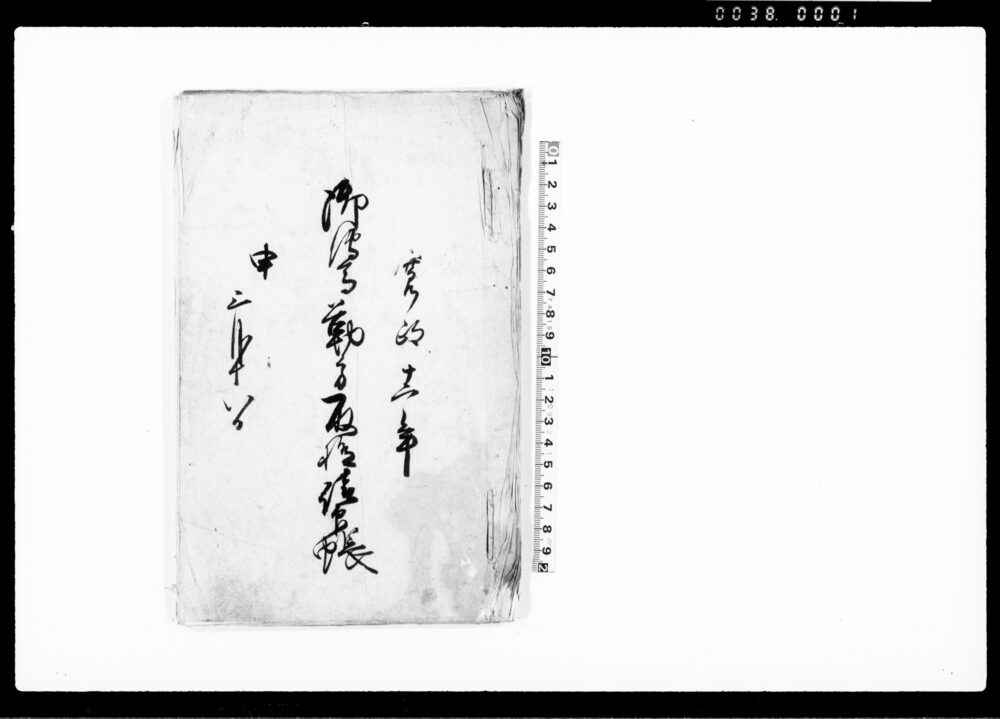 0038 0001
寛政十二年
御傳馬勤方取極請印帳
申
三月十八日
0 1 2 3 4 5 6 7 8 9 10 1 2 3 4 5 6 7 8 9 2